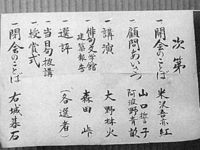 次第
一開会のことば 米沢吾亦紅
一顧問あいさつ 山口誓子
阿波野青畝
一講演 大野林火
俳句文学館
建築報告 森田峠
一選評 (各選者)
一当局披講
一授賞式
一閉会のことば 右城暮石